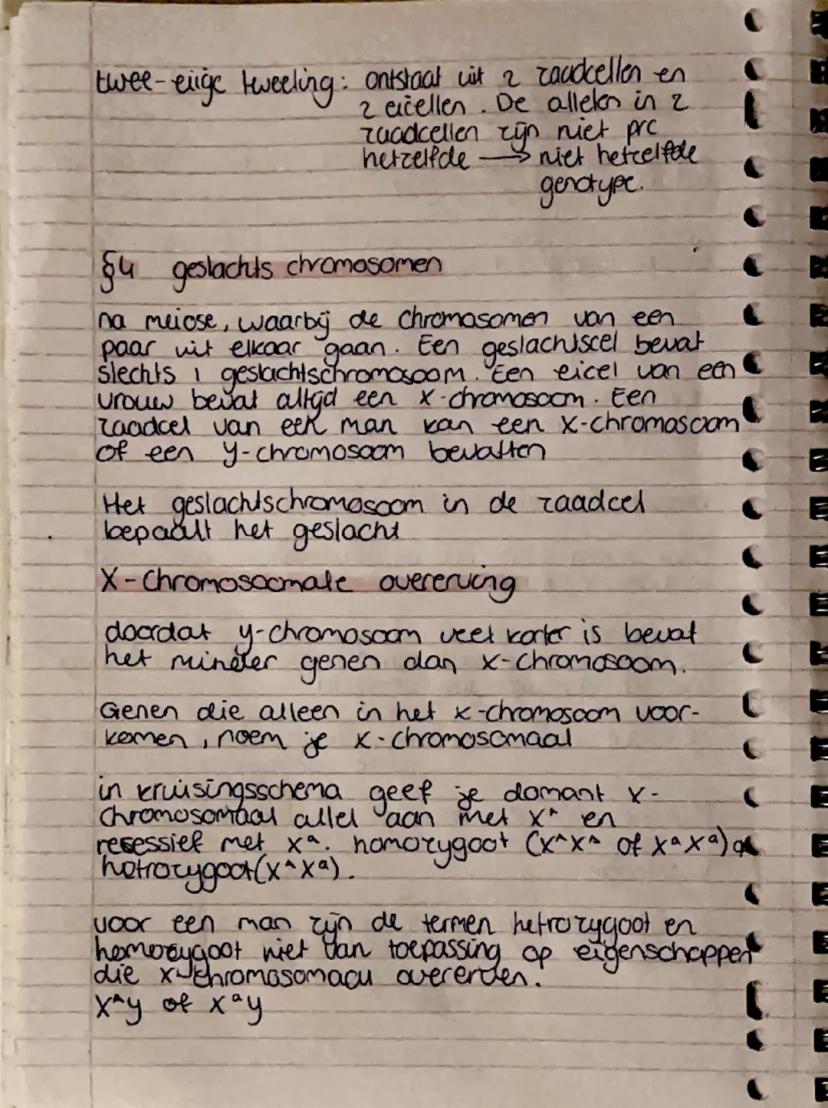 twee-eiige tweeling: ontstaat uit 2 zaadcellen en
2 eicellen. De allelen in 2
zaadcellen zijn niet prc
hetzelfde → niet hetzelfde
genotype.
§4 geslachts chromosomen
na meiose, waarbij de chromosomen van een
paar uit elkaar gaan. Een geslachtscel bevat
slechts 1 geslachtschromosoom. Een eicel van een
vrouw bevat altijd een X-chromosoom. Een
zaadcel van een man kan een X-chromosoom
of een Y-chromosoom bevatten
Het geslachtschromosoom in de zaadcel
bepaalt het geslacht
X-Chromosoomale overerving
doordat y-chromosoom veel korter is bevat
het minder genen dan x-chromosoom.
Genen die alleen in het x-chromosoom voor-
komen, noem je x-chromosomaal
in kruisingsschema geef je domant X-
Chromosomaal allel aan met Xᴬ en
resessief met Xᵃ. homozygoot (XᴬXᴬ of XᵃXᵃ) of
hetrozygoot(XᴬXᵃ).
voor een man zijn de termen hetrozygoot en
homozygoot niet van toepassing op eigenschappen
die x-chromosomaal overerven.
Xᴬy of Xᵃy